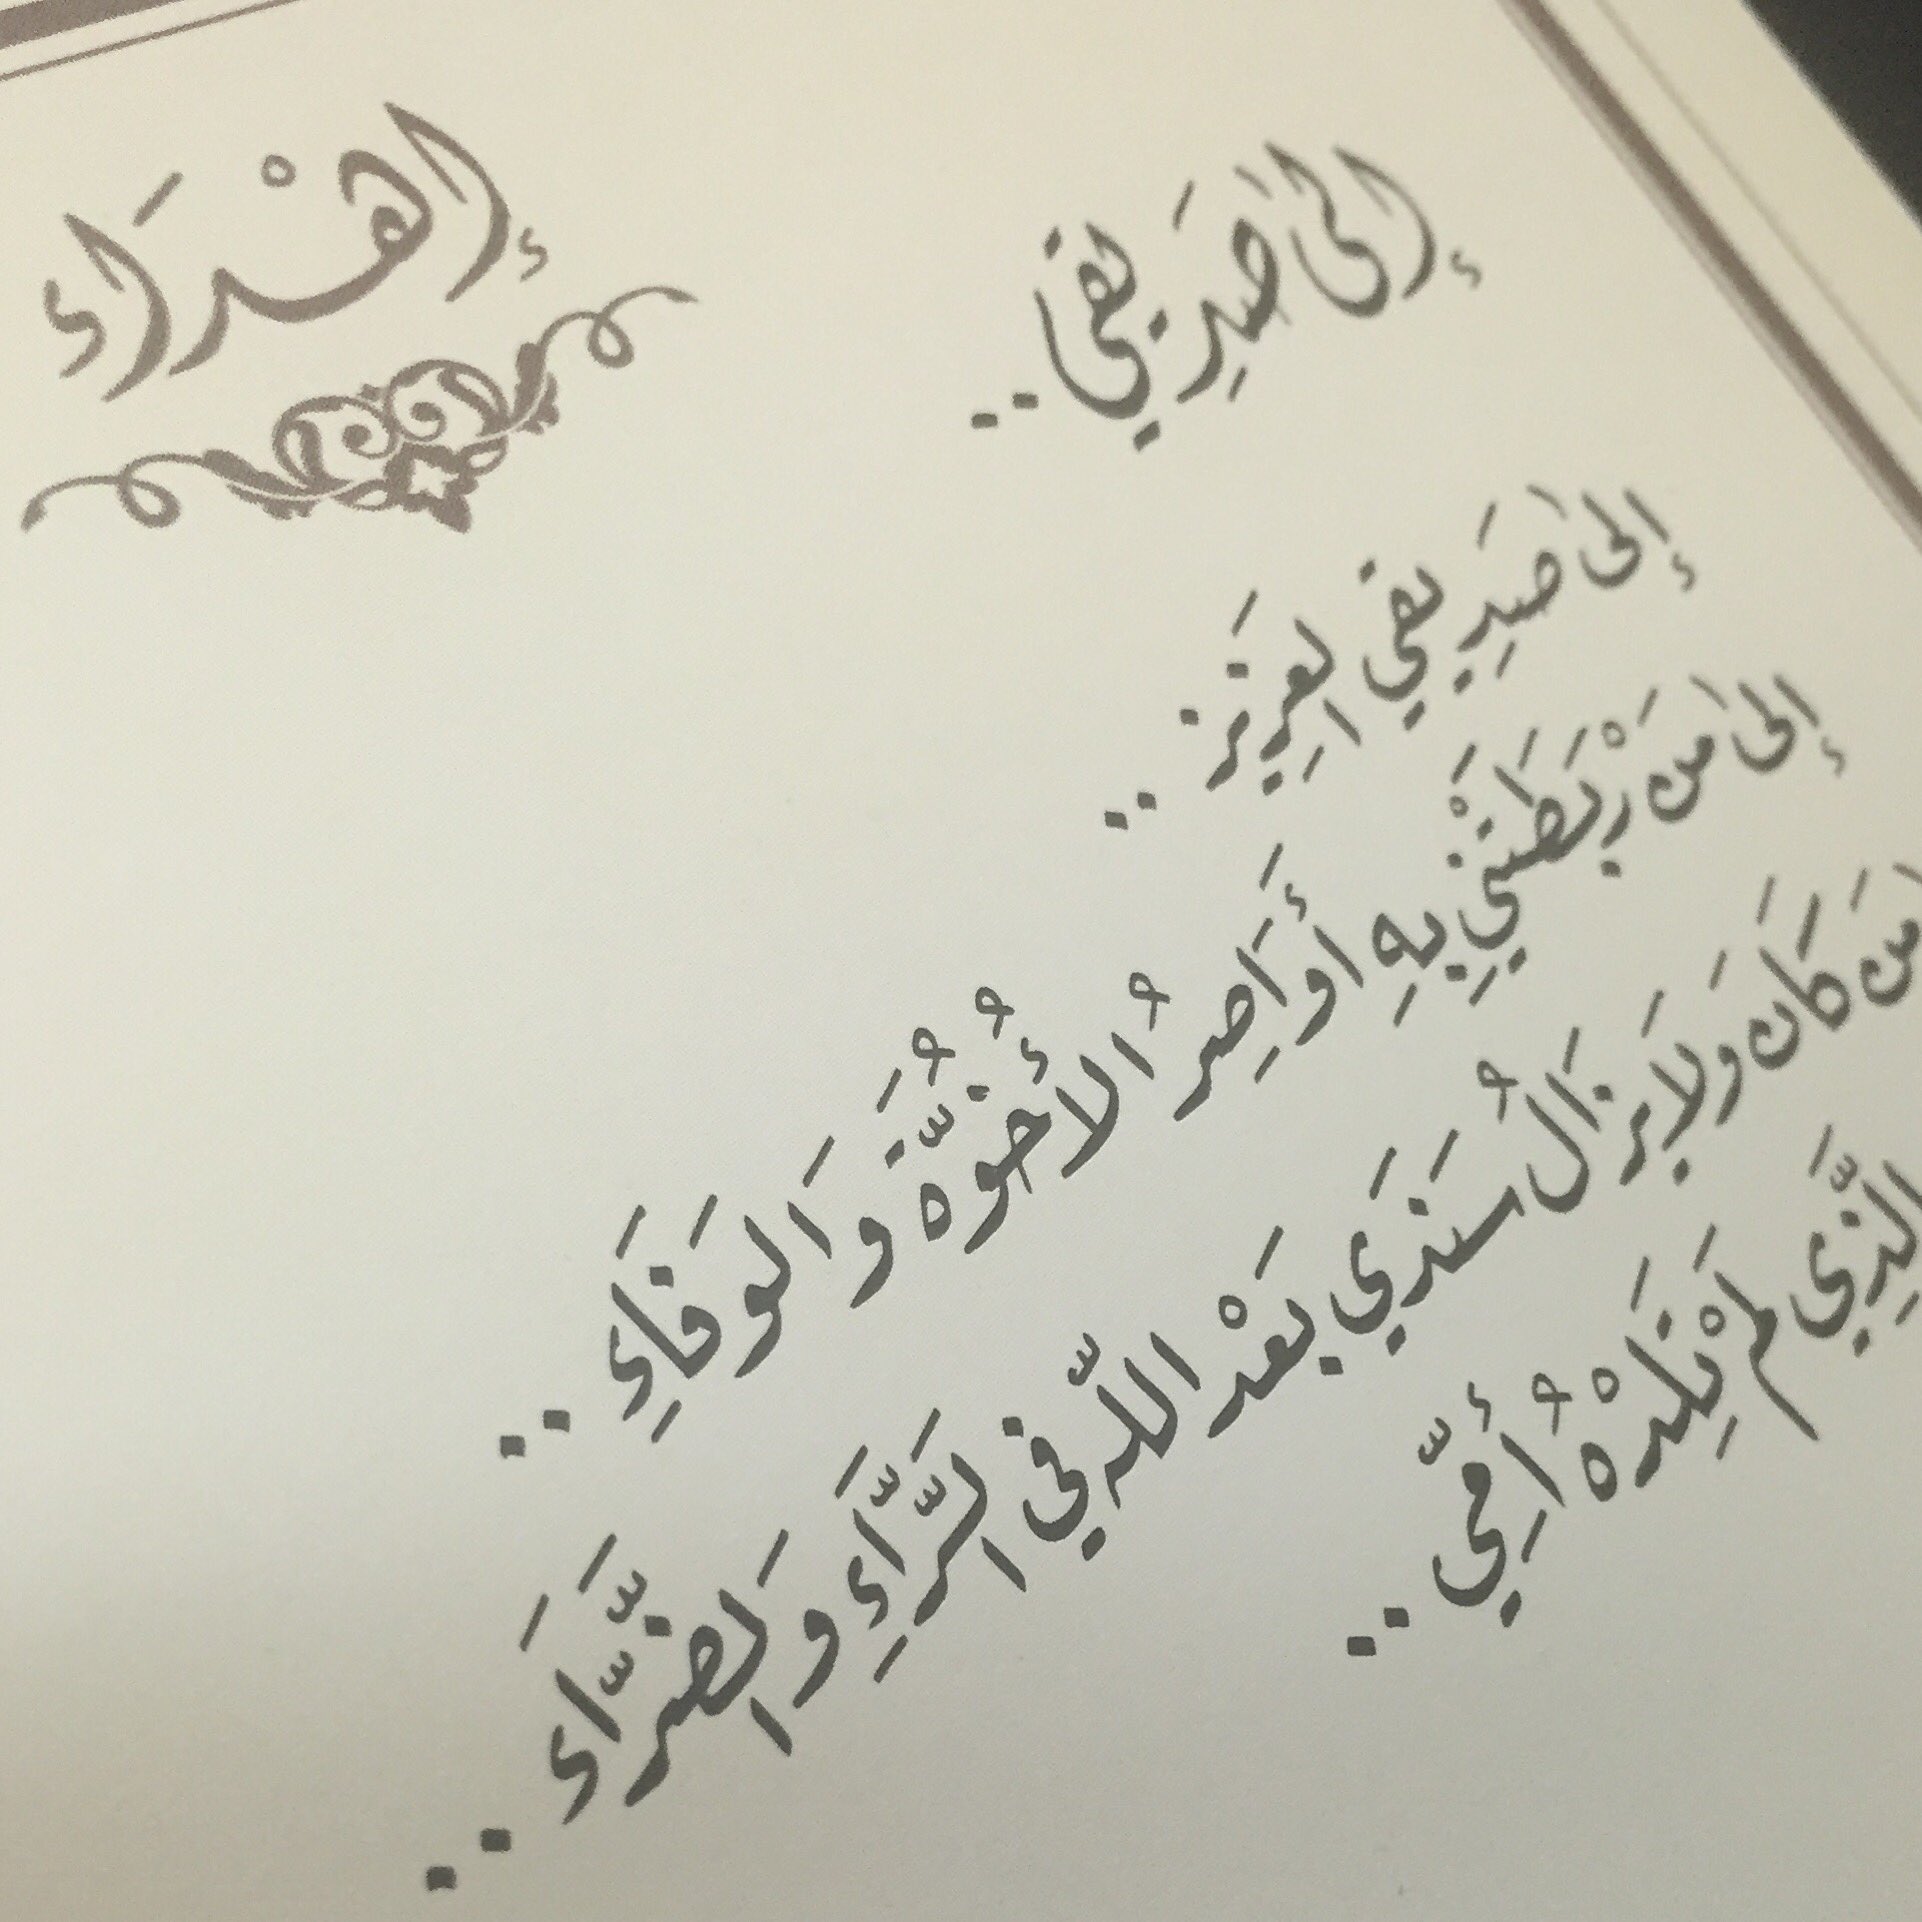 إِهْدَاء
إِلىٰ صَدِيقي ..
إِلىٰ صَدِيقي العَزِيز ..
إِلىٰ مَن رَبْطَتْنِي بِهِ أَوَاصِرُ الأُخُوَّةُ وَالوَفَاءِ ..
مَن كَانَ وَلَا يَزَالُ سَنَدَي بَعْد اللّه في السَّرَّاءِ والضَّرَّاءَ ..
الَّذِي لَمْ تَلِدْهُ أُمِّي ..